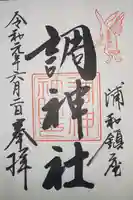 浦和鎮座
調神社
令和元年六月二日奉拝